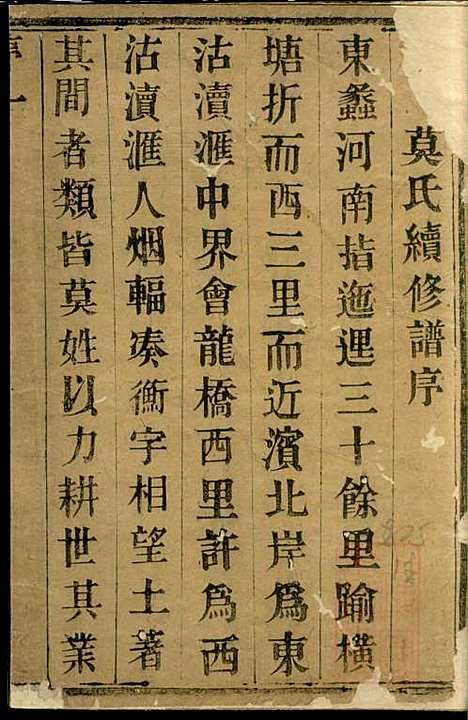 莫氏續修譜序
東蠡河南指迤逞三十餘里踰橫
塘折而西三里而近濱北岸爲東
沽瀆滙中界會龍橋西里許爲西
沽瀆滙人烟輻凑衡宇相望土著
其間者類皆莫姓以力耕世其業
序 一
825